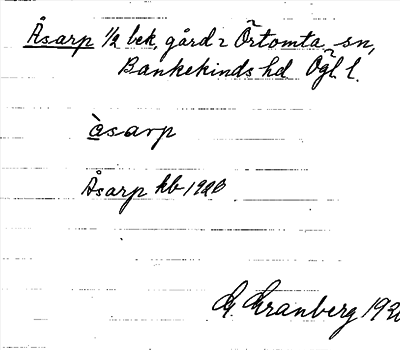 Åsarp 1/2 bek, gård 2 Örtomta sn,
Bankekinds hd Ögl. l.
åsarp
Åsarp kb 1920
G. Granberg